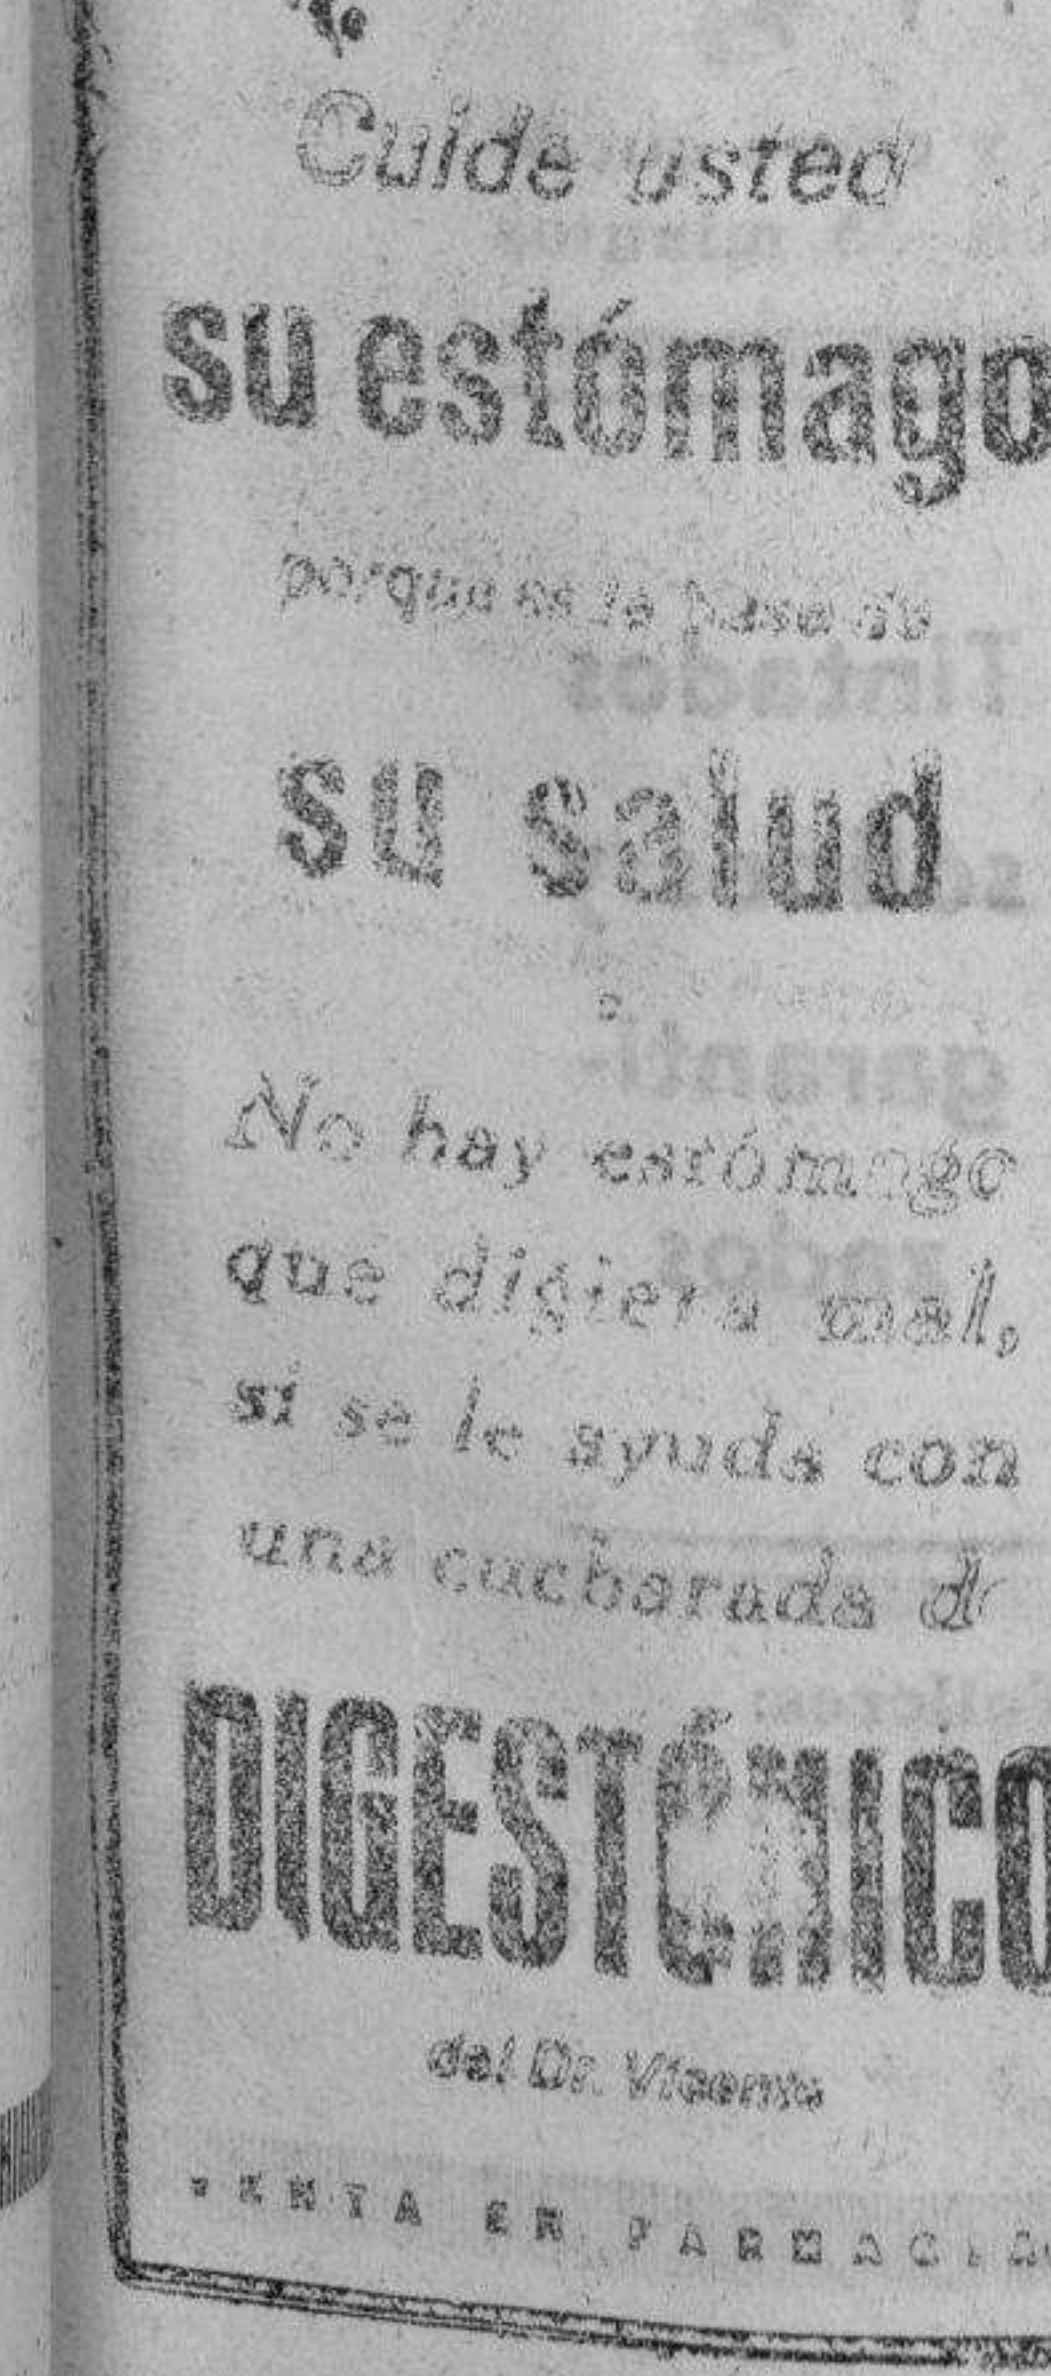 Cuide usted
su estómago
porque es la base de
su salud
No hay estómago
que digiera mal,
si se le ayuda con
una cucharada de
DIGESTÓNICO
del Dr. Vicente
VENTA EN FARMACIAS